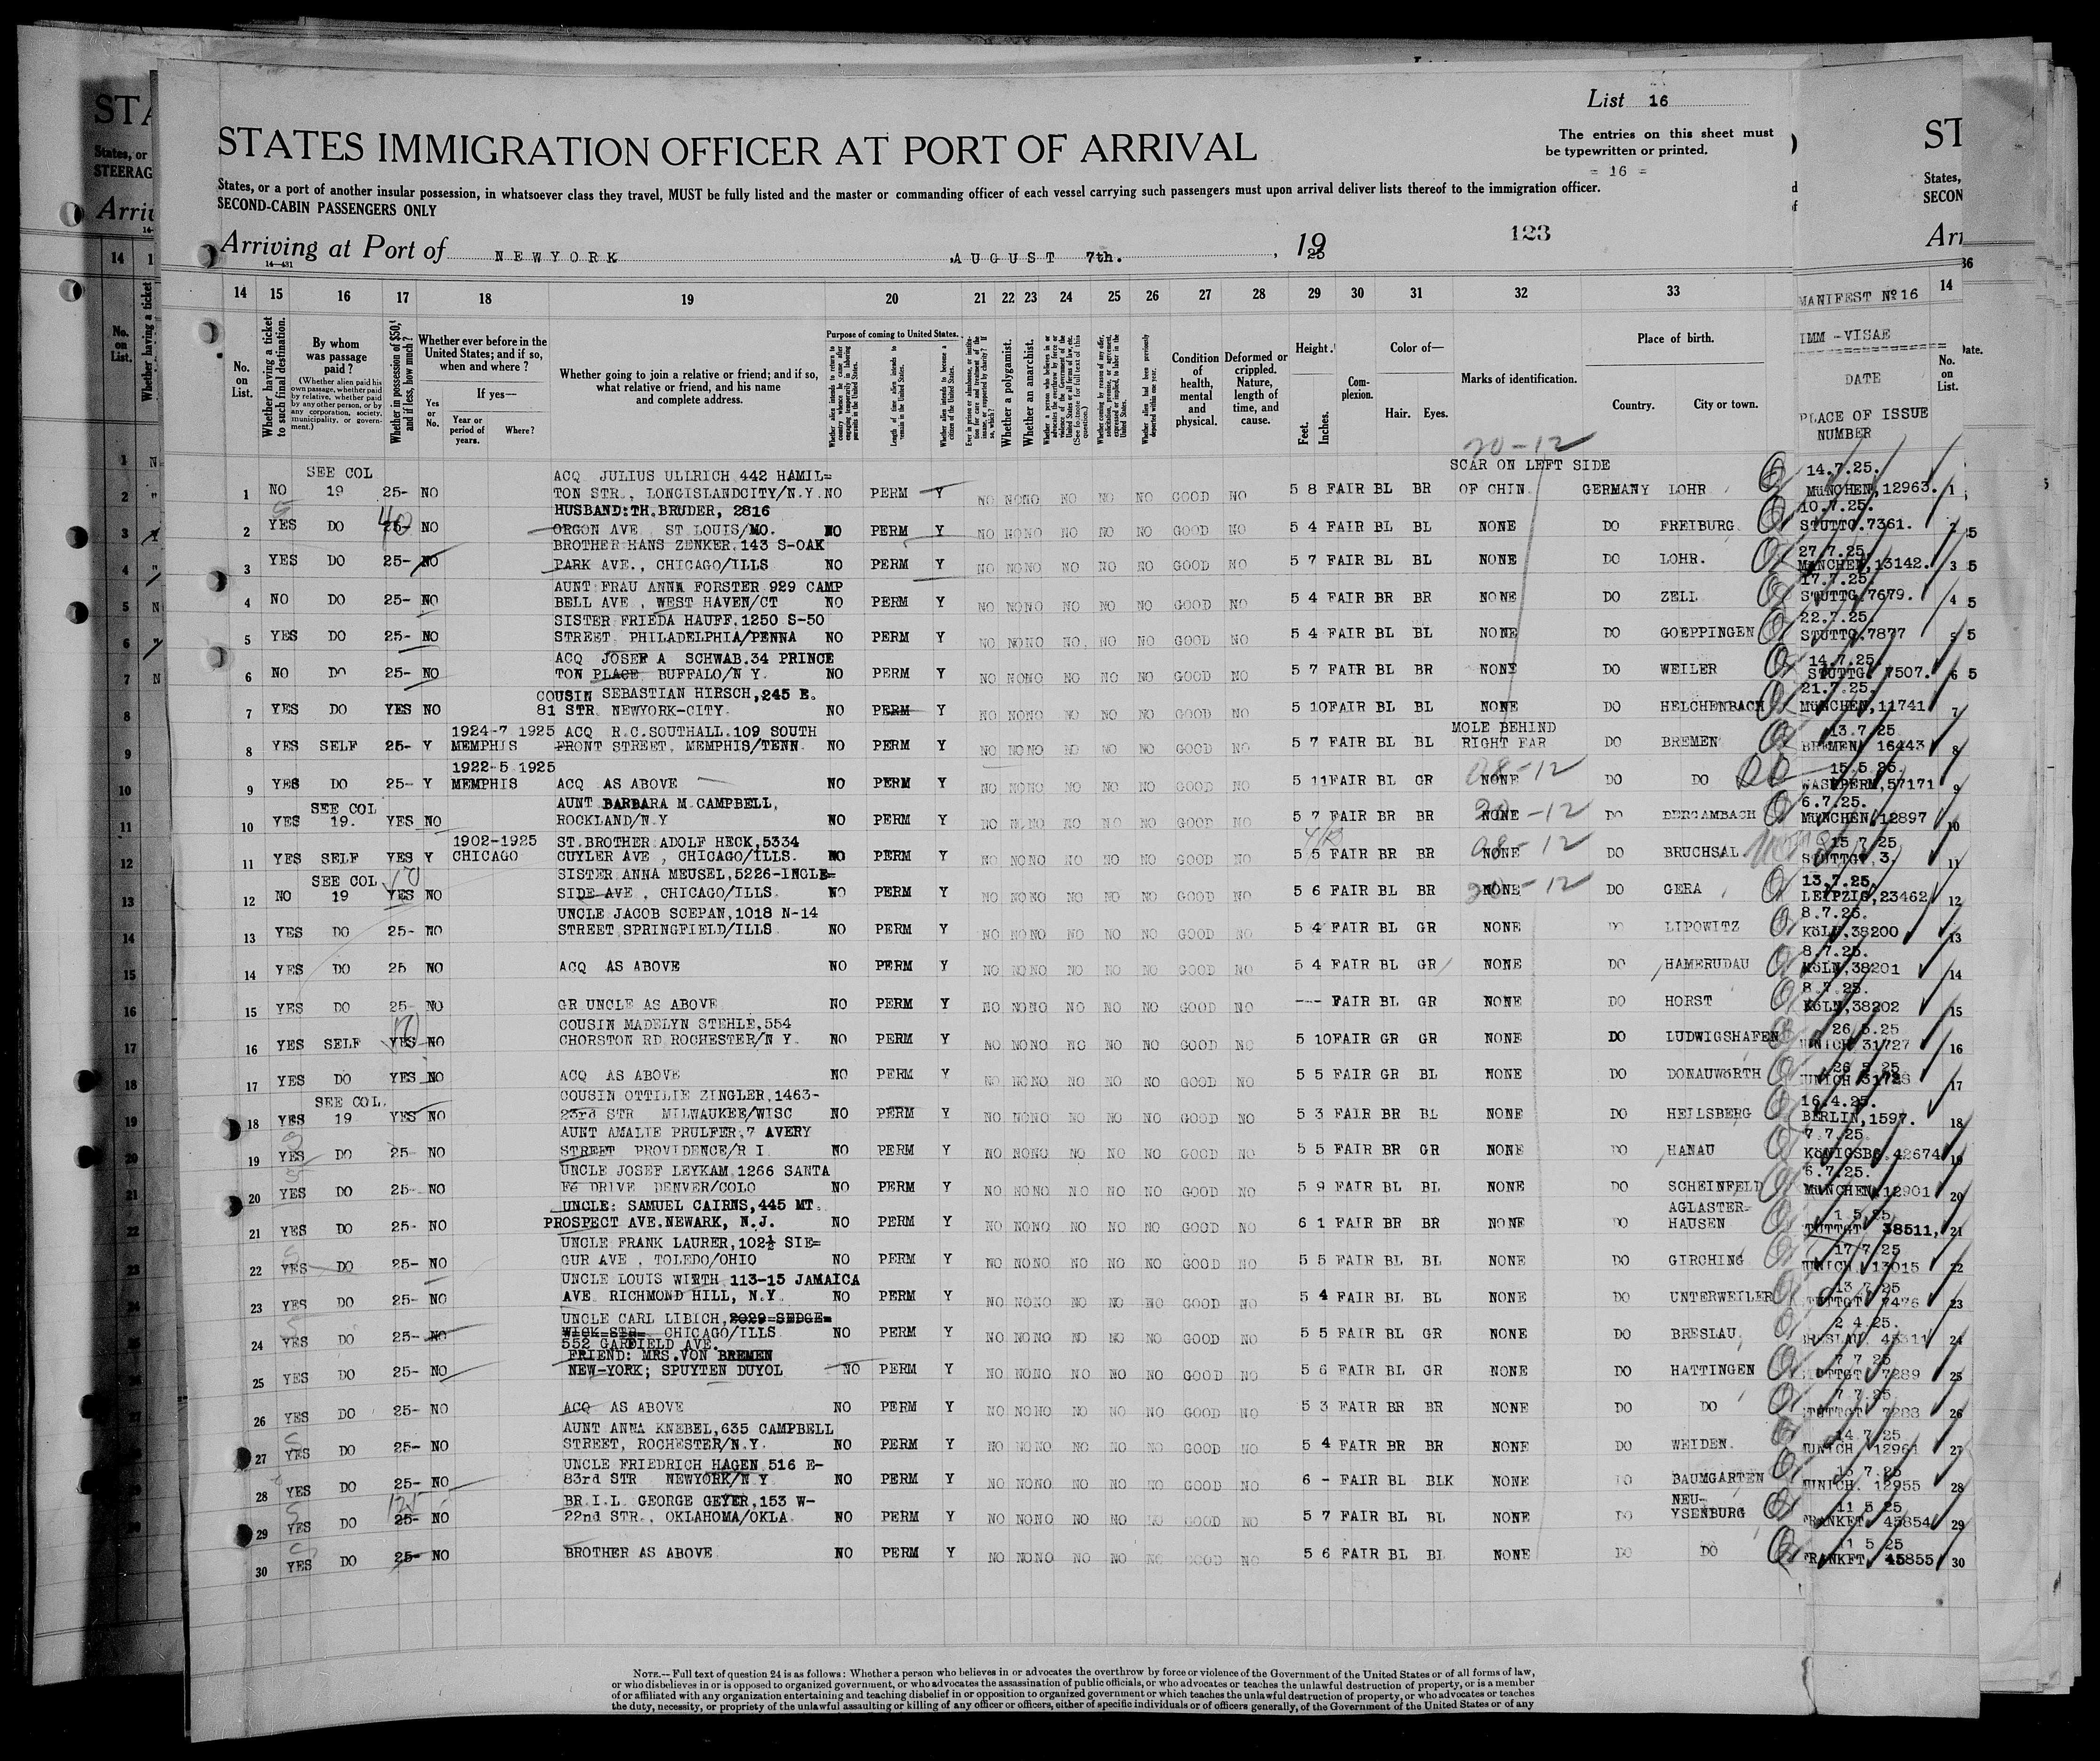 List 16
STATES IMMIGRATION OFFICER AT PORT OF ARRIVAL
The entries on this sheet must
be typewritten or printed.
= 16 =
States, or a port of another insular possession, in whatsoever class they travel, MUST be fully listed and the master or commanding officer of each vessel carrying such passengers must upon arrival deliver lists thereof to the immigration officer.
SECOND-CABIN PASSENGERS ONLY
Arriving at Port of NEWYORK, AUGUST 7th., 1925
123
14 15 16 17 18 19 20 21 22 23 24 25 26 27 28 29 30 31 32 33
No. on List.
Whether having a ticket to such final destination.
By whom was passage paid?
(Whether alien paid his own passage, whether paid by relative, whether paid by any other person, or by any corporation, society, municipality, or government.)
Whether in possession of $50, and if less, how much?
Whether ever before in the United States; and if so, when and where?
If yes—
Yes or No.
Year or period of years.
Where?
Whether going to join a relative or friend; and if so, what relative or friend, and his name and complete address.
Purpose of coming to United States.
Length of time alien intends to remain in the United States.
Whether alien intends to become a citizen of the United States.
Whether a polygamist.
Whether an anarchist.
Condition of health, mental and physical.
Deformed or crippled. Nature, length of time, and cause.
Height.
Feet. Inches.
Complexion.
Color of—
Hair. Eyes.
Marks of identification.
Place of birth.
Country. City or town.
MANIFEST Nº 16
IMM-VISAE
DATE
PLACE OF ISSUE
NUMBER
20-12
SEE COL ACQ JULIUS ULLRICH 442 HAMIL= SCAR ON LEFT SIDE 14.7.25.
1 NO 19 25- NO TON STR., LONGISLANDCITY/N.Y. NO PERM Y NO NO NO NO NO NO GOOD NO 5 8 FAIR BL BR OF CHIN. GERMANY LOHR MüNCHEN, 12963. 1
HUSBAND: TH. BRUDER, 2816 10.7.25.
2 YES DO 25- 40 NO ORGON AVE ST. LOUIS/MO. NO PERM Y NO NO NO NO NO NO GOOD NO 5 4 FAIR BL BL NONE DO FREIBURG STUTTG. 7361. 2
BROTHER HANS ZENKER. 143 S-OAK 27.7.25.
3 YES DO 25- NO PARK AVE., CHICAGO/ILLS NO PERM Y NO NO NO NO NO NO GOOD NO 5 7 FAIR BL BL NONE DO LOHR. MüNCHEN, 13142. 3
AUNT FRAU ANNA FORSTER 929 CAMP 17.7.25.
4 NO DO 25- NO BELL AVE, WEST HAVEN/CT NO PERM Y NO NO NO NO NO NO GOOD NO 5 4 FAIR BR BR NONE DO ZELL STUTTG. 7679. 4
SISTER FRIEDA HAUFF. 1250 S-50 22.7.25.
5 YES DO 25- NO STREET PHILADELPHIA/PENNA NO PERM Y NO NO NO NO NO NO GOOD NO 5 4 FAIR BL BL NONE DO GOEPPINGEN STUTTG. 7877 5
ACQ JOSEF A SCHWAB. 34 PRINCE 14.7.25.
6 NO DO 25- NO TON PLACE BUFFALO/N Y. NO PERM Y NO NO NO NO NO NO GOOD NO 5 7 FAIR BL BR NONE DO WEILER STUTTG. 7507. 6
COUSIN SEBASTIAN HIRSCH, 245 E. 21.7.25.
7 YES DO YES NO 81 STR. NEWYORK-CITY. NO PERM Y NO NO NO NO NO NO GOOD NO 5 10 FAIR BL BL NONE DO HELCHENBACH MüNCHEN, 11741 7
1924-7 1925 ACQ R.C. SOUTHALL. 109 SOUTH MOLE BEHIND 13.7.25
8 YES SELF 25- Y MEMPHIS FRONT STREET, MEMPHIS/TENN. NO PERM Y NO NO NO NO NO NO GOOD NO 5 7 FAIR BL BL RIGHT EAR DO BREMEN BREMEN 16443 8
1922-5 1925 08-12 15.5.25.
9 YES DO 25- Y MEMPHIS ACQ AS ABOVE NO PERM Y NO NO NO NO NO NO GOOD NO 5 11 FAIR BL GR NONE DO DO WASH PERM, 57171 9
SEE COL AUNT BARBARA M CAMPBELL, 20-12 6.7.25.
10 YES 19. YES NO ROCKLAND/N.Y NO PERM Y NO NO NO NO NO NO GOOD NO 5 7 FAIR BR BR NONE DO DERCAMBACH MüNCHEN, 12897 10
1902-1925 ST. BROTHER ADOLF HECK, 5334 08-12 15 7 25
11 YES SELF YES Y CHICAGO CUYLER AVE, CHICAGO/ILLS. NO PERM Y NO NO NO NO NO NO GOOD NO 5 5 FAIR BR BR NONE DO BRUCHSAL STUTTGT, 3. 11
SEE COL SISTER ANNA MEUSEL, 5226-INGLE= 20-12 13.7.25.
12 NO 19 YES NO SIDE AVE, CHICAGO/ILLS. NO PERM Y NO NO NO NO NO NO GOOD NO 5 6 FAIR BL BR NONE DO GERA LEIPZIG, 23462 12
UNCLE JACOB SCEPAN, 1018 N-14 8.7.25.
13 YES DO 25- NO STREET SPRINGFIELD/ILLS NO PERM Y NO NO NO NO NO NO GOOD NO 5 4 FAIR BL GR NONE DO LIPOWITZ KöLN, 38200 13
8.7.25.
14 YES DO 25 NO ACQ AS ABOVE NO PERM Y NO NO NO NO NO NO GOOD NO 5 4 FAIR BL GR NONE DO HAMERUDAU KöLN, 38201 14
8.7.25.
15 YES DO 25 NO GR UNCLE AS ABOVE NO PERM Y NO NO NO NO NO NO GOOD NO --- FAIR BL GR NONE DO HORST KöLN, 38202 15
COUSIN MADELYN STEHLE, 554 26 5.25
16 YES SELF YES NO CHORSTON RD ROCHESTER/N Y. NO PERM Y NO NO NO NO NO NO GOOD NO 5 10 FAIR GR GR NONE DO LUDWIGSHAFEN MUNICH 31727 16
26 5 25
17 YES DO YES NO ACQ AS ABOVE NO PERM Y NO NO NO NO NO NO GOOD NO 5 5 FAIR GR BL NONE DO DONAUWöRTH MUNICH 31728 17
SEE COL. COUSIN OTTILIE ZINGLER, 1463- 16.4.25.
18 YES 19 YES NO 23rd STR MILWAUKEE/WISC NO PERM Y NO NO NO NO NO NO GOOD NO 5 3 FAIR BR BL NONE DO HEILSBERG BERLIN, 1597. 18
AUNT AMALIE PRULFER, 7 AVERY 7 7.25
19 YES DO 25- NO STREET PROVIDENCE/R I NO PERM Y NO NO NO NO NO NO GOOD NO 5 5 FAIR BR GR NONE DO HANAU KöNIGSBG. 42674 19
UNCLE JOSEF LEYKAM 1266 SANTA 6.7.25.
20 YES DO 25- NO Fé DRIVE DENVER/COLO NO PERM Y NO NO NO NO NO NO GOOD NO 5 9 FAIR BL BL NONE DO SCHEINFELD MüNCHEN 12901 20
UNCLE: SAMUEL CAIRNS, 445 MT. AGLASTER- 1 5 25
21 YES DO 25- NO PROSPECT AVE. NEWARK, N.J. NO PERM Y NO NO NO NO NO NO GOOD NO 6 1 FAIR BR BR NONE DO HAUSEN TUTTGT 38511, 21
UNCLE FRANK LAURER, 102½ SIE= 17 7 25
22 YES DO 25- NO GUR AVE, TOLEDO/OHIO NO PERM Y NO NO NO NO NO NO GOOD NO 5 5 FAIR BL BL NONE DO GIRCHING MUNICH. 13015 22
UNCLE LOUIS WIRTH 113-15 JAMAICA 13 7 25
23 YES DO 25- NO AVE RICHMOND HILL, N.Y. NO PERM Y NO NO NO NO NO NO GOOD NO 5 4 FAIR BL BL NONE DO UNTERWEILER TUTTGT 7476 23
UNCLE CARL LIBICH, 2029=SEDGE= 2 4 25.
24 YES DO 25- NO WICK=STR= CHICAGO/ILLS NO PERM Y NO NO NO NO NO NO GOOD NO 5 5 FAIR BL GR NONE DO BRESLAU BRESLAU 45311 24
552 GARFIELD AVE.
FRIEND: MRS. VON BREMEN 7 7 25
25 YES DO 25- NO NEW-YORK; SPUYTEN DUYOL NO PERM Y NO NO NO NO NO NO GOOD NO 5 6 FAIR BL GR NONE DO HATTINGEN TUTTGT 7289 25
7 7 25
26 YES DO 25- NO ACQ AS ABOVE NO PERM Y NO NO NO NO NO NO GOOD NO 5 3 FAIR BR BR NONE DO DO TUTTGT 7288 26
AUNT ANNA KNEBEL, 635 CAMPBELL 14 7 25
27 YES DO 25- NO STREET, ROCHESTER/N.Y. NO PERM Y NO NO NO NO NO NO GOOD NO 5 4 FAIR BR BR NONE DO WEIDEN. MUNICH. 12961 27
UNCLE FRIEDRICH HAGEN 516 E- 15 7 25
28 YES DO 25- NO 83rd STR NEWYORK/N Y NO PERM Y NO NO NO NO NO NO GOOD NO 6 - FAIR BL BLK NONE DO BAUMGARTEN MUNICH. 12955 28
BR.I.L. GEORGE GEYER, 153 W- NEU- 11 5 25
29 YES DO 25- NO 22nd STR., OKLAHOMA/OKLA. NO PERM Y NO NO NO NO NO NO GOOD NO 5 7 FAIR BL BL NONE DO YSENBURG FRANKFT. 45854 29
11 5 25
30 YES DO 25- NO BROTHER AS ABOVE NO PERM Y NO NO NO NO NO NO GOOD NO 5 6 FAIR BL BL NONE DO DO FRANKFT. 45855 30
NOTE.—Full text of question 24 is as follows: Whether a person who believes in or advocates the overthrow by force or violence of the Government of the United States or of all forms of law,
or who disbelieves in or is opposed to organized government, or who advocates the assassination of public officials, or who advocates or teaches the unlawful destruction of property, or is a member
of or affiliated with any organization entertaining and teaching disbelief in or opposition to organized government or which teaches the unlawful destruction of property, or who advocates or teaches
the duty, necessity, or propriety of the unlawful assaulting or killing of any officer or officers, either of specific individuals or of officers generally, of the Government of the United States or of any